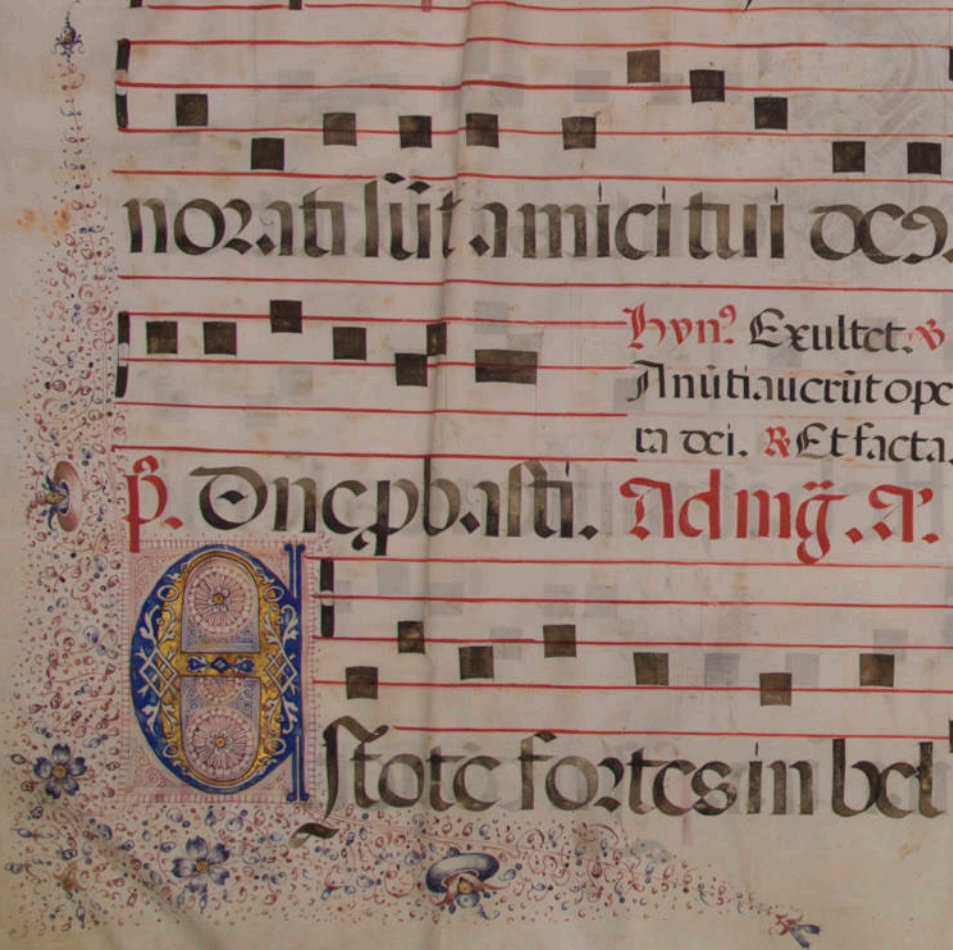 norati sūt amici tui deꝰ.
Hyn⁹ Exultet. ℣
Anūtiaucrūt ope
ra dei. ℟ Et facta.
p̄. Dnē ꝓbasti. Ad mg̃. añ.
Estote fortes in bel